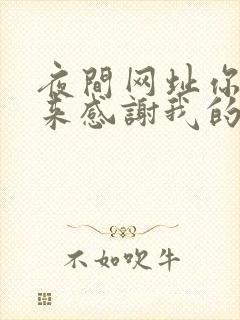 夜間网址你
来感謝我的
不如吹牛